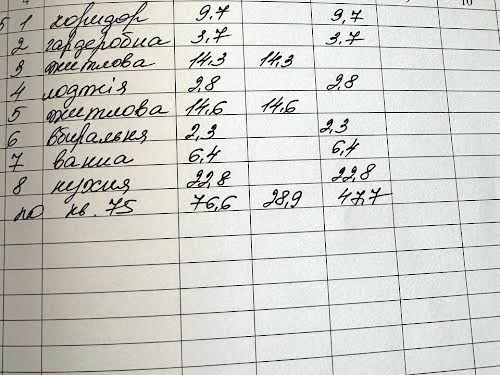 5 1 коридор 9,7 9,7
2 гардеробна 3,7 3.7
3 житлова 14,3 14,3
4 лоджія 2,8 2,8
5 житлова 14,6 14,6
6 вбиральня 2,3 2,3
7 ванна 6,4 6,4
8 кухня 22,8 22,8
по кв. 75 76,6 28,9 47,7